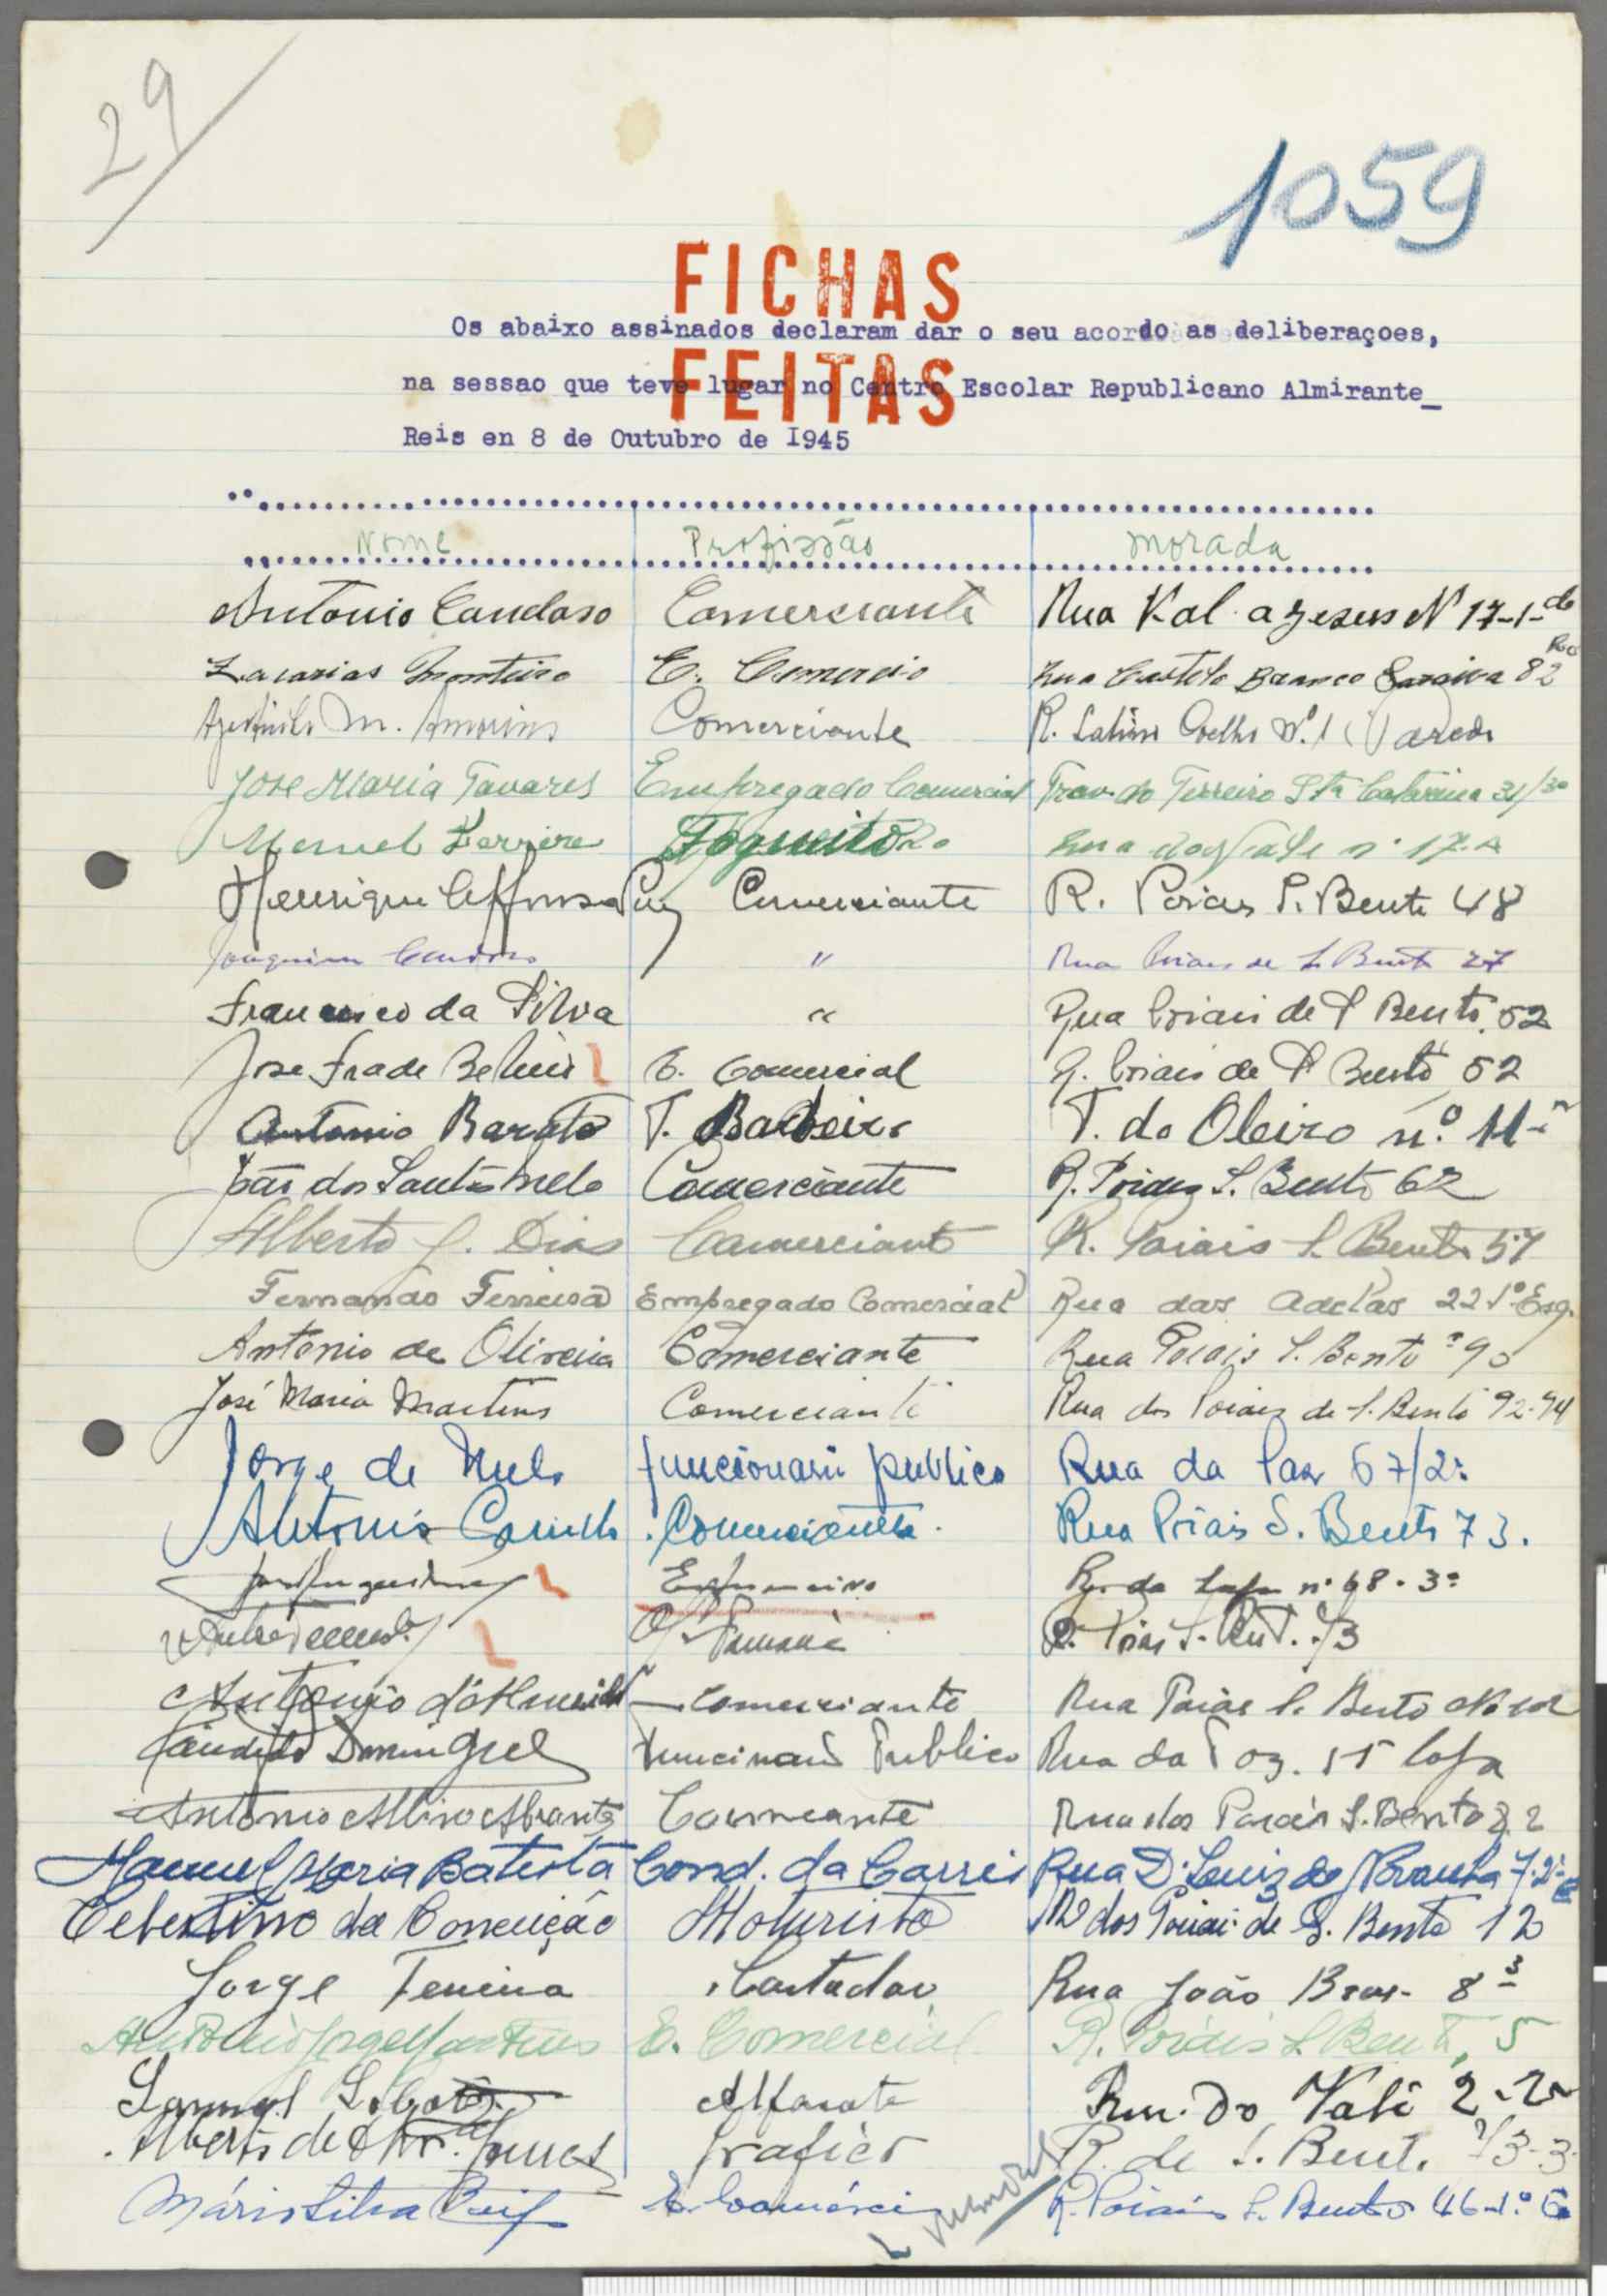 29
1059
FICHAS
FEITAS
Os abaixo assinados declaram dar o seu acordo as deliberaçoes,
na sessao que teve lugar no Centro Escolar Republicano Almirante_
Reis en 8 de Outubro de I945
Nome Profissão morada
Antonio Candoso Comerciante Rua Val a Jesus Nº 17-1-
Zacarias Monteiro E. Comercio Rua Castelo Branco Saraiva 82
M. Amorim Comerciante R. Latino Coelho Nº. 1
José Maria Tavares Empregado Comercial Trav. do Terreiro Sta Catarina
Manuel Ferreira Fogueiro Rua
Henrique Affonso Comerciante R. Poiais S. Bento 48
Joaquim " Rua Poiais de S. Bento 27
Francisco da Silva " Rua Poiais de S Bento. 52
Jose Frade Belmis E. Comercial R. Poiais de S Bento 52
Antonio Barata T. Barbeiro T. do Oleiro n.º 11
João dos Santos Melo Comerciante R. Poiais S. Bento 62
Alberto J. Dias Comerciante R. Poiais S. Bento 57
Fernando Ferreira Empregado Comercial Rua das Adelas 22 1º Esq.
Antonio de Oliveira Comerciante Rua Poiais S. Bento 90
José Maria Martins Comerciante Rua dos Poiais de S. Bento 92-94
Jorge de Melo funcionario publico Rua da Paz 67/2º
Antonio Comerciante. Rua Poiais S. Bento 73.
R. da n.º 68-3º
R. Poiais S. Bent.
Antonio d'Almeida Comerciante Rua Poiais S. Bento
Candido Domingues Funcionario Publico Rua da
Antonio Albino Abrantes Comerciante Rua dos Poiais S. Bento 82
Manuel Maria Batista Cond. da Carris Rua D. Luiz de Noronha 7-2º
Celestino da Conceição Motorista R dos Poiais de S. Bento 12
Jorge Ferreira Cortador Rua João Bras. 8 3º
Antonio Jorge Martins E. Comercial R. Poiais S. Bento, 5
Alfaiate Rua do Vale 2-2º
Alberto de Gomes Grafico R. de S. Bento
Mário Silva E. Comércio R. Poiais S. Bento 46-1º